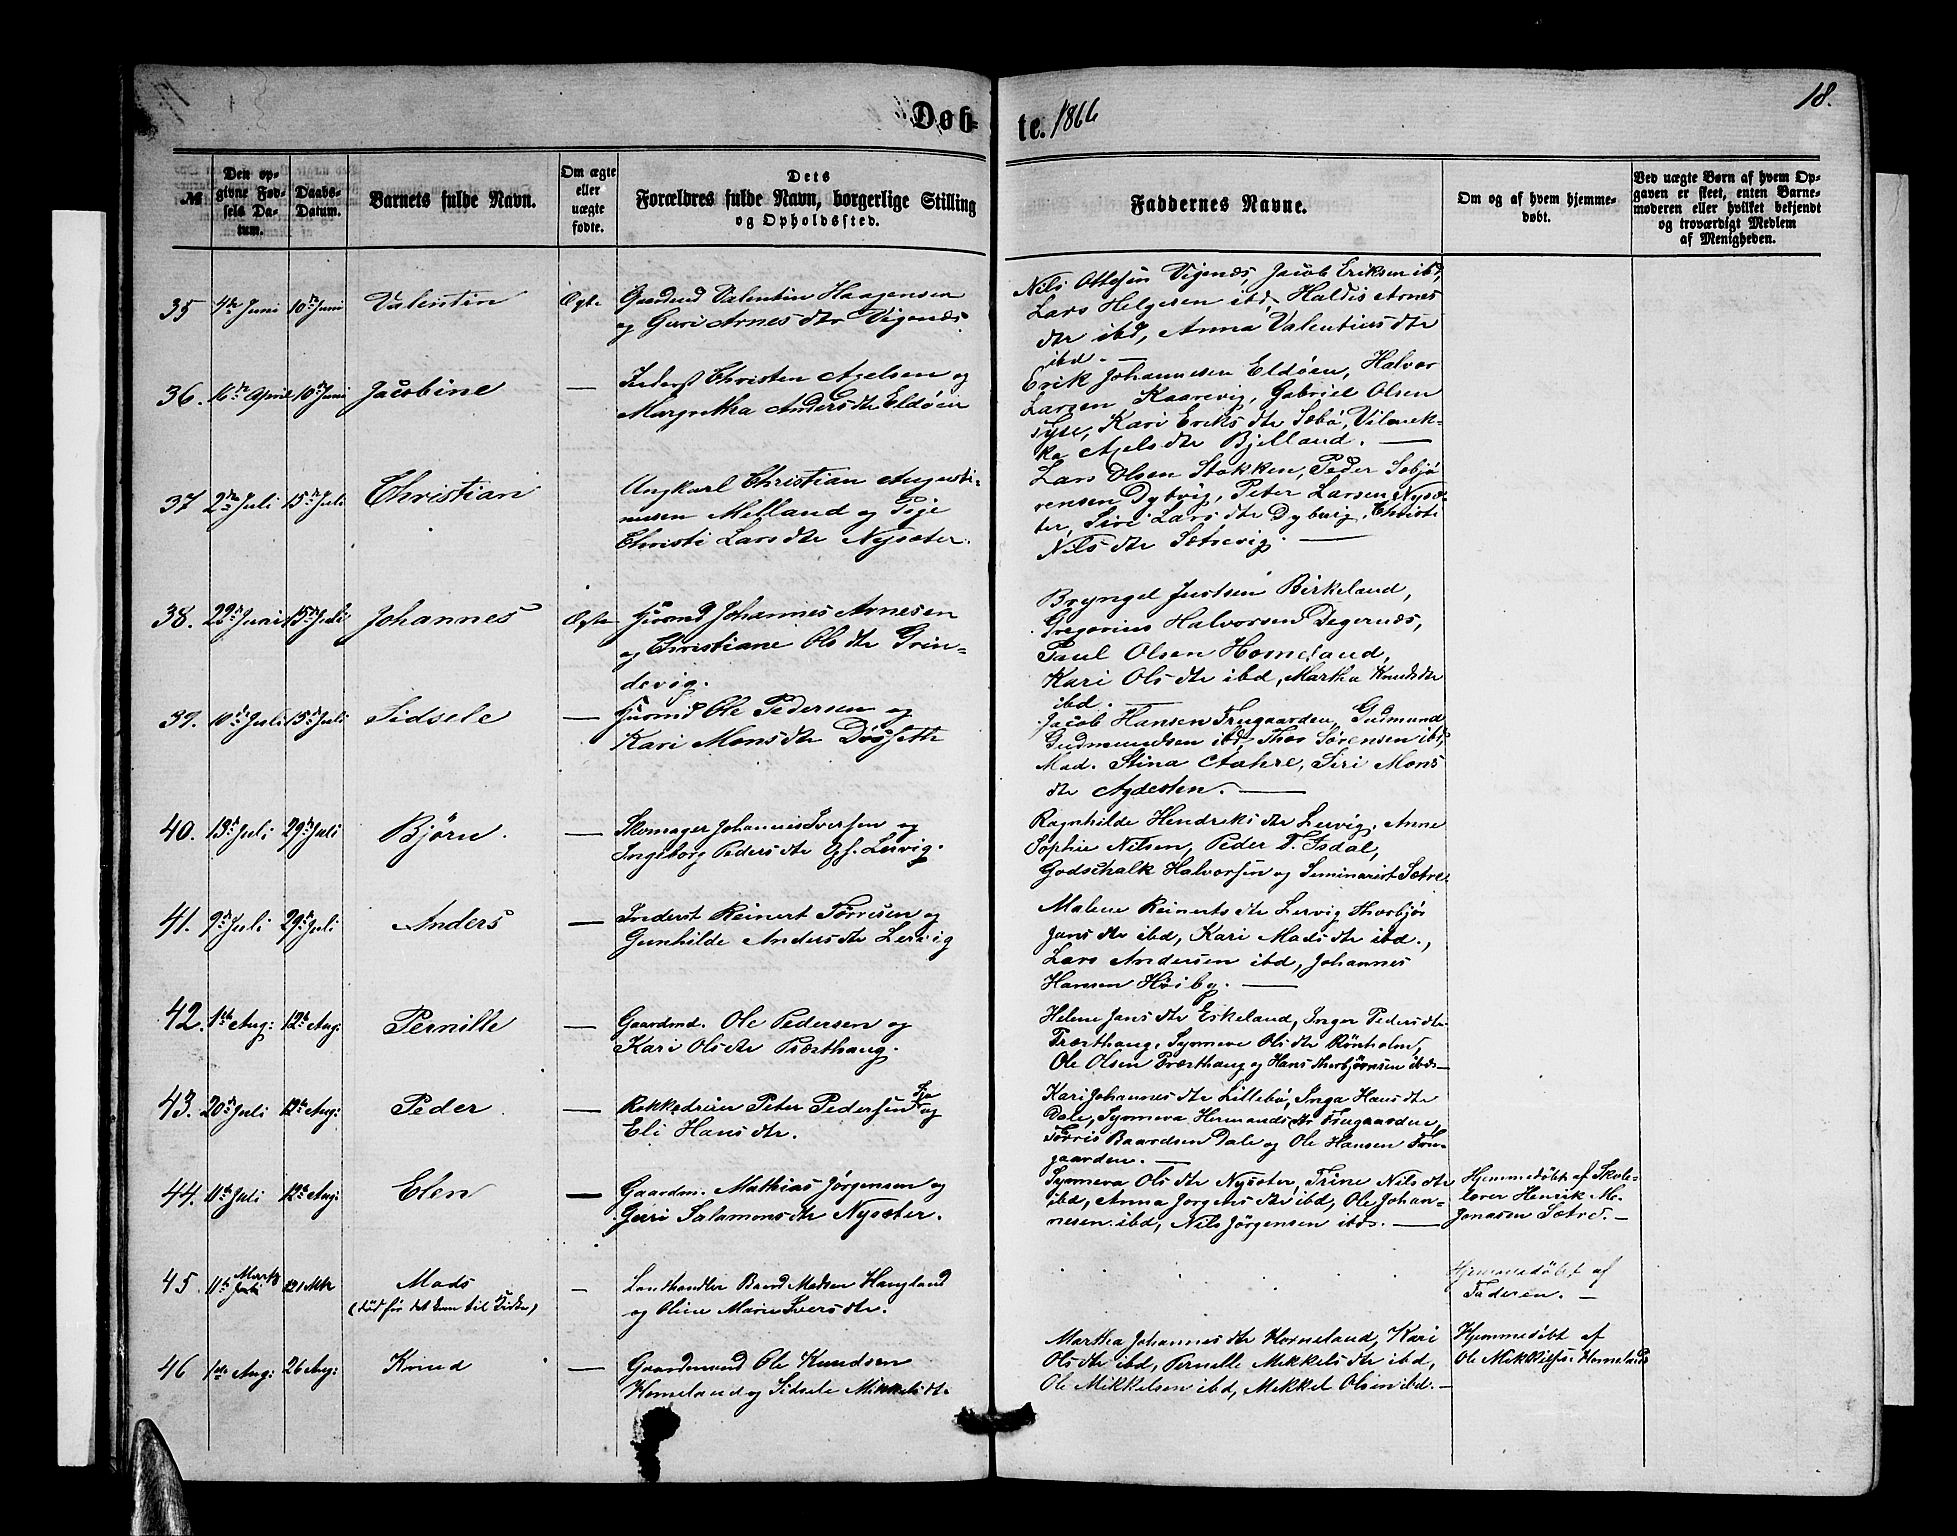 Døb-
te. 1866
18.
№
Den op-
givne Fød-
sels Da-
tum.
Daabs-
Datum.
Barnets fulde Navn.
Om ægte
eller
uægte
fødte.
Dets
Forældres fulde Navn, borgerlige Stilling
og Opholdssted.
Faddernes Navne.
Om og af hvem hjemme-
døbt.
Ved uægte Børn af hvem Op-
gaven er skeet, enten Barne-
moderen eller hvilket bekjendt
og troværdigt Medlem
af Menigheden.
35 4de Juni 10de Juni Valentin Ægte Valentin Haagensen
og Guri Arnesdtr Vigenæs.
Nils Ottesen Vigenæs, Jacob Eriksen ibd,
Lars Helgesen ibd, Haldis Arnes
dtr ibd, Anna Valentinsdtr
ibd. —
36. 16de April 10de Juni Jacobine — Inderst Christen Axelsen og
Margretha Andersdtr Eldøen
Erik Johannesen Eldøen, Halvor
Larsen Kaarevig, Gabriel Olsen
Lyse, Kari Eriksdtr Sæbø, Vilmek-
ke Axelsdtr Bjelland. —
37 2den Juli 15de Juli Christian Ungkarl Christian Augusti-
nusen Melland og Pige
Christi Larsdtr Nysæter.
Lars Olsen Stokken, Peder Sebjø
rensen Dybvig, Peter Larsen Nysæ-
ter, Siri Larsdtr Dybvig, Christi
Nilsdtr Sætrevig. —
38. 29de Juni 15de Juli Johannes Ægte Gårmd Johannes Arnesen
og Christiane Olsdtr Grin-
devig.
Bryngel Justsen Birkeland,
Gregorius Halvorsen Degernæs,
Paul Olsen Horneland,
Kari Olsdtr ibd, Martha Knudsdtr
ibd. —
39. 10de Juli 15de Juli Sidsele — Gårmd Ole Pedersen og
Kari Monsdtr Døssette
Jacob Hansen Frugaarden, Gudmund
Gudmundsen ibd, Thor Sørensen ibd,
Mad. Stina Aahre, Siri Mons
dtr Agdesten. —
40. 13de Juli 29de Juli Bjørn. — Skomager Johannes Iversen og
Ingeborg Pedersdtr Lervig.
Ragnhilde Hendriksdtr Lervig, Anne
Sophie Nilsen, Peder T. Isdal,
Godschalk Halvorsen og Seminarist Sætre.
41. 9de Juli 29de Juli Anders — Inderst Reinert Tørresen og
Gunhilde Andersdtr Lervig
Malene Reinertsdtr Lervig Thorbjør
Jansdtr ibd, Kari Madsdtr ibd.,
Lars Andersen ibd, Johannes
Hansen Høiby. —
42. 1ste Aug: 12te Aug: Pernille — Gaardmd. Ole Pedersen og
Kari Olsdtr Præsthaug.
Helene Jansdtr Eskeland, Inger Pedersdtr
Præsthaug, Synneve Olsdtr Rønholm,
Ole Olsen Præsthaug og Hans Thorbjørnsen ibd —
43. 20de Juli 12te Aug: Peder — Rokkedreier Peter Pedersen og
Eli Hansdtr.
Kari Johannesdtr Lillebø, Inga Hansdtr
Dale, Synneva Hermundsdtr Frugaarden,
Tørris Baardsen Dale og Ole Hansen Fru-
gaarden. —
44. 11te Juli 12te Aug: Elen — Gaardm. Mathias Jørgensen og
Guri Salamonsdtr Nysæter.
Synneva Olsdtr Nysæter, Trine Nilsdtr
ibd, Anna Jørgensdtr ibd, Ole Johan-
nesen ibd, Nils Jørgensen ibd. —
Hjemmedøbt af Skole-
lærer Henrik M.
Jonasen Sætre. —
45. 11te Marts 21 Mts Mads
(død før det kom til Kirke) — Landhandler Baard Madsen Haugland
og Oline Marie Iversdtr.
Hjemmedøbt af
Faderen. —
46 1ste Aug: 26 Aug: Knud — Gaardmand Ole Knudsen
Horneland og Sidsele Mikkelsdtr
Martha Johannesdtr Horneland, Kari
Olsdtr ibd, Pernille Mikkelsdtr ibd,
Ole Mikkelsen ibd, Mikkel Olsen ibd. —
Hjemmedøbt af
Ole Mikkelsen Horneland